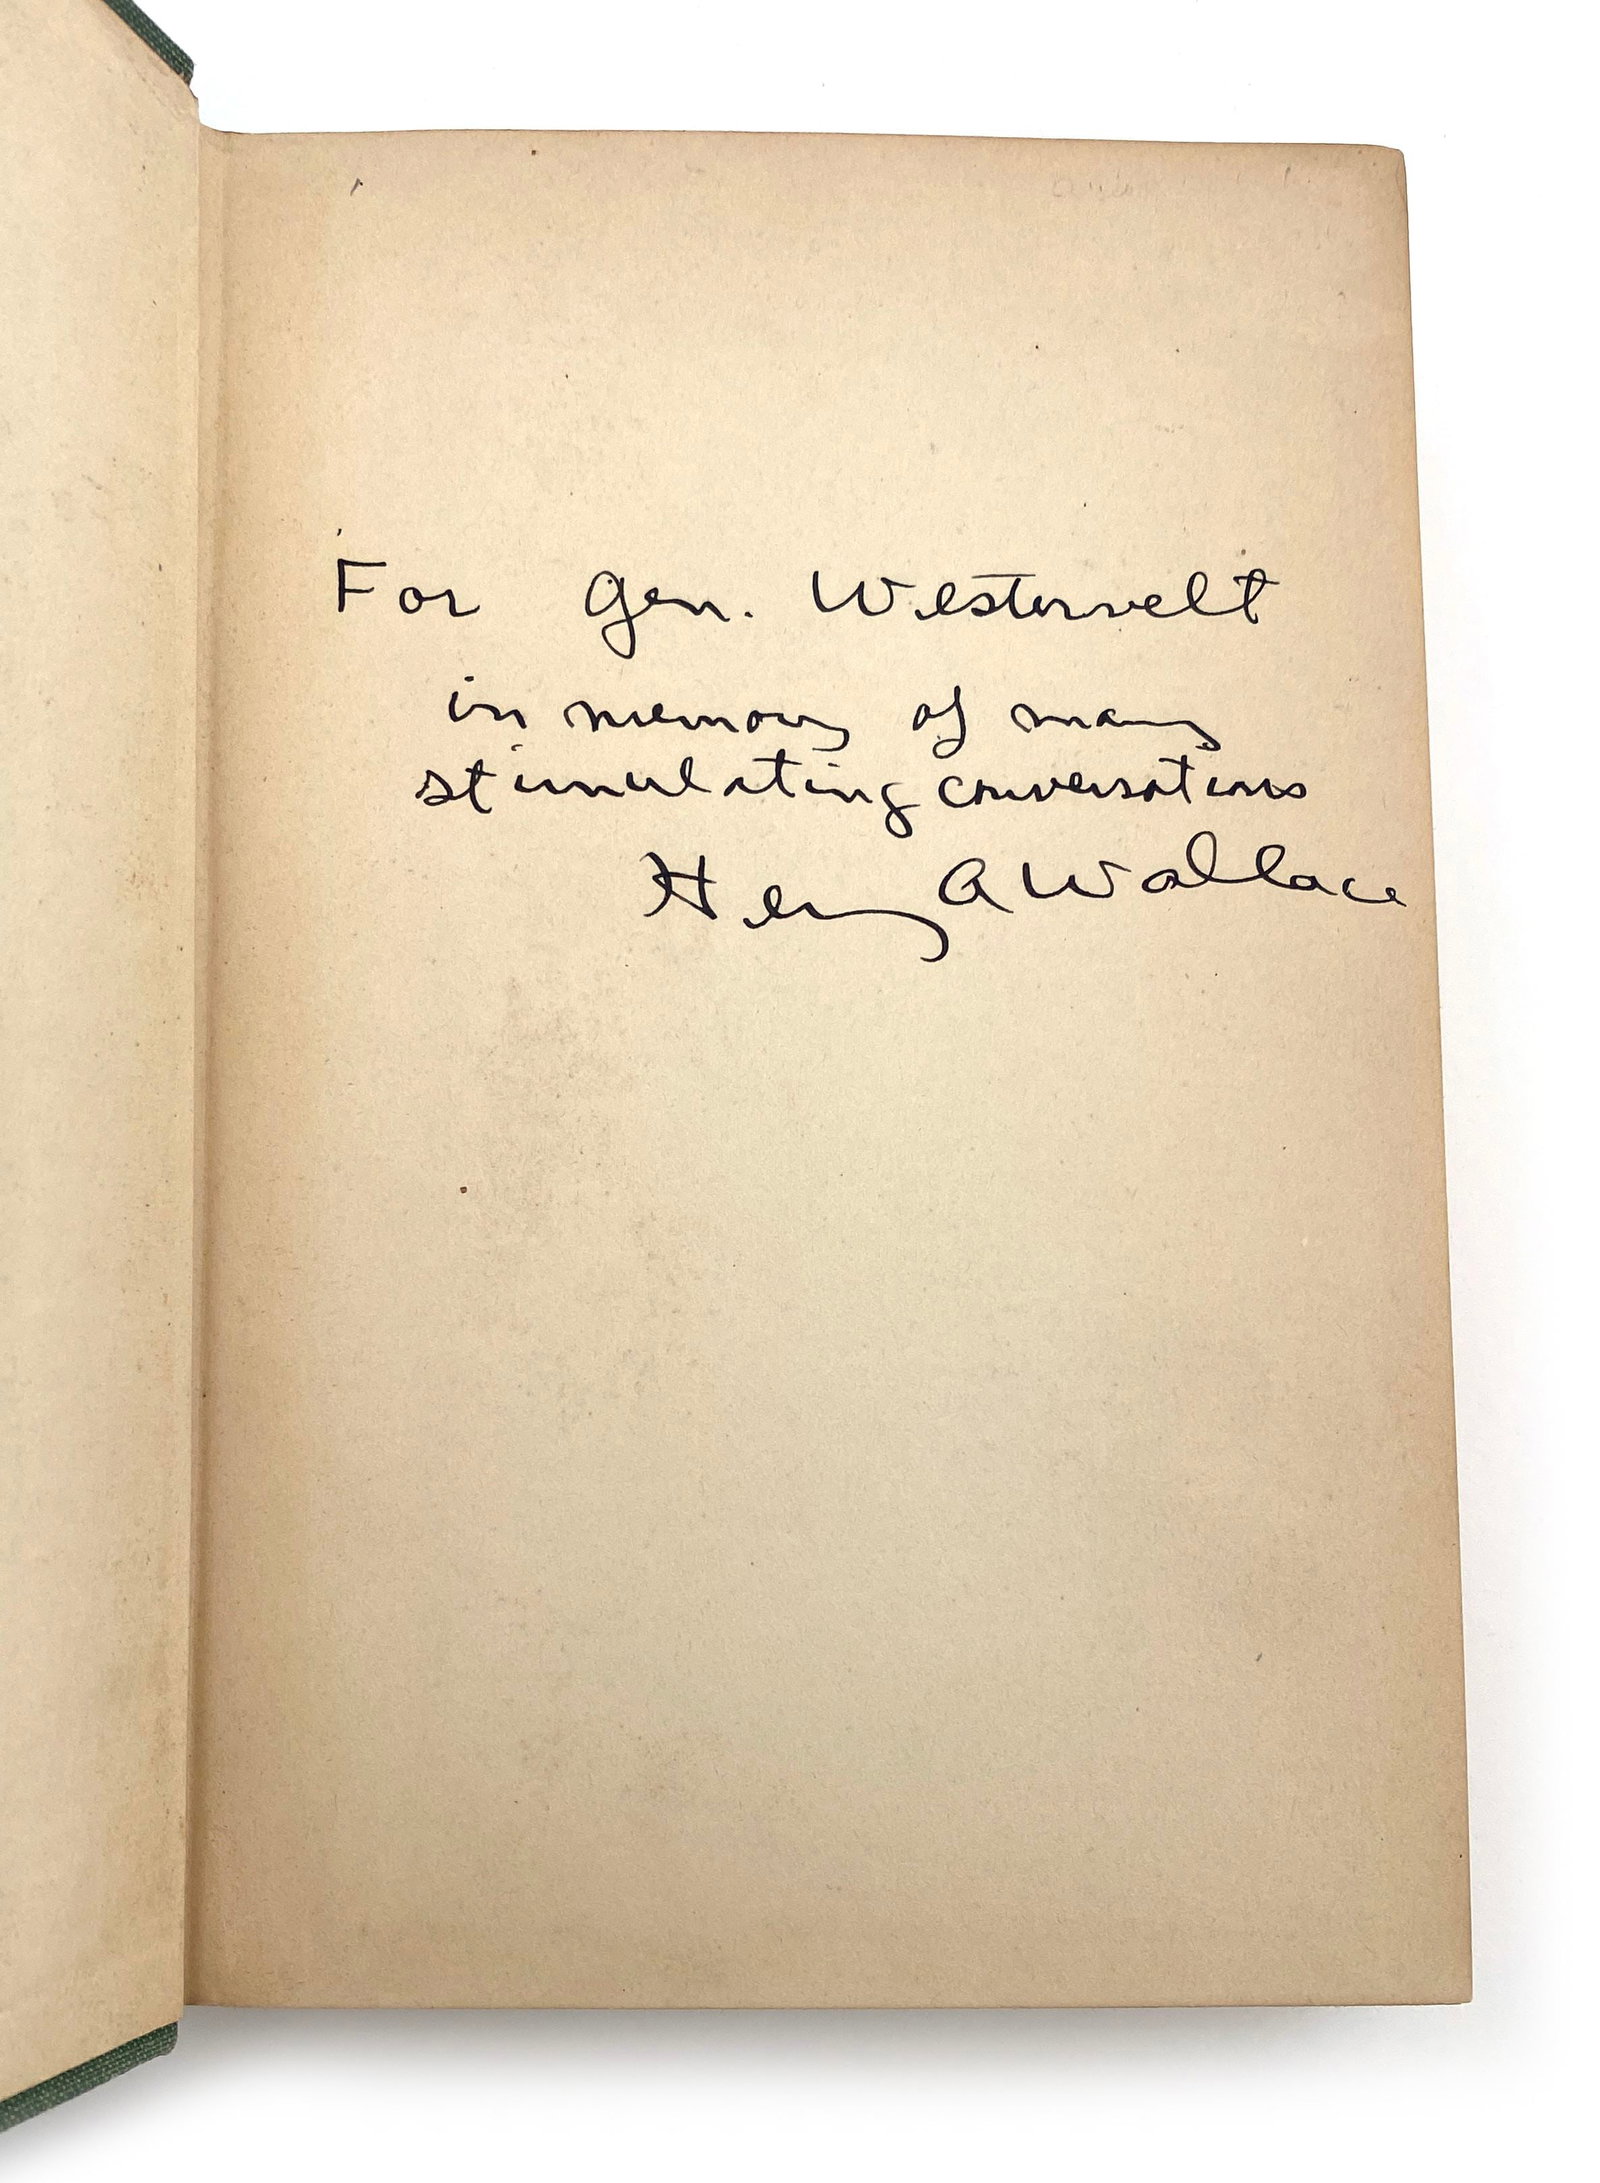 For Gen. Westervelt
in memory of many
stimulating conversations
Henry A Wallace